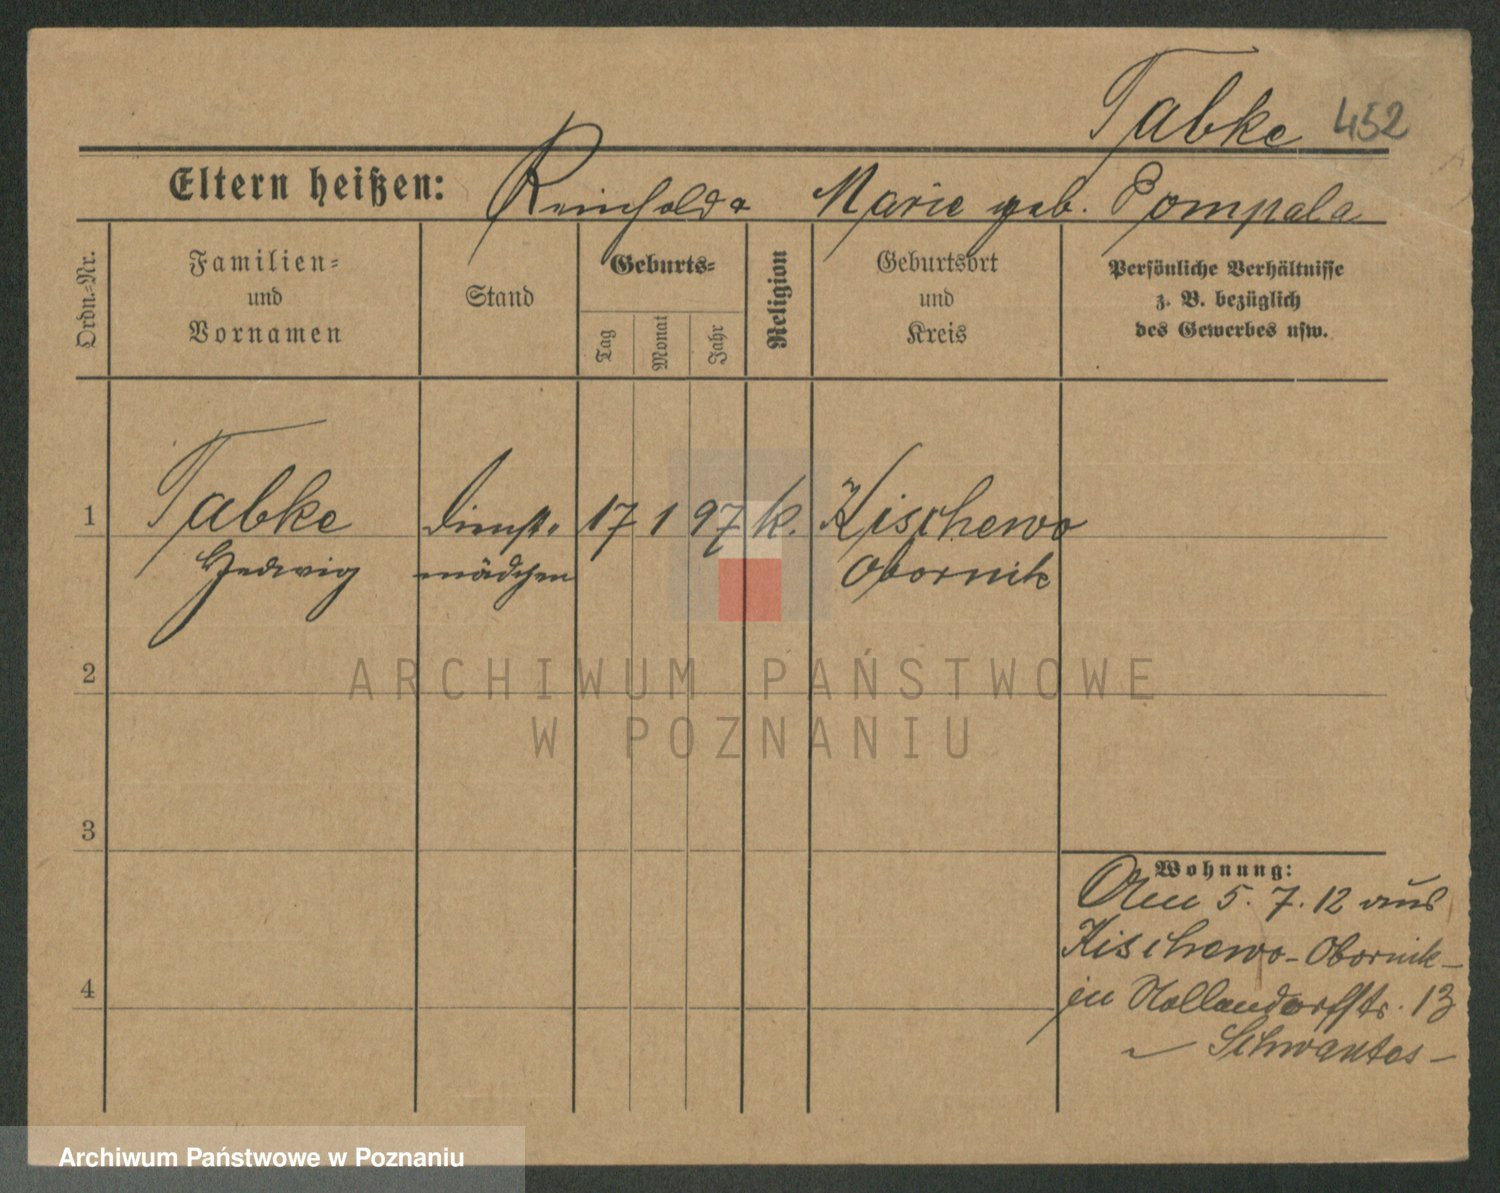 Tabke 452
Eltern heißen: Reinhold & Marie geb. Pompala
Ordn.-Nr.
Familien-
und
Vornamen
Stand
Geburts-
Tag
Monat
Jahr
Religion
Geburtsort
und
Kreis
Persönliche Verhältnisse
z. B. bezüglich
des Gewerbes usw.
1 Tabke Dienst- 17 1 97 k. Kischewo
Hedwig mädchen Obornik
2
ARCHIWUM PAŃSTWOWE
W POZNANIU
3
Wohnung:
Am 5. 7. 12 aus
Kischewo-Obornik-
in Hollandorffstr. 13
4
Schwantes-
Archiwum Państwowe w Poznaniu